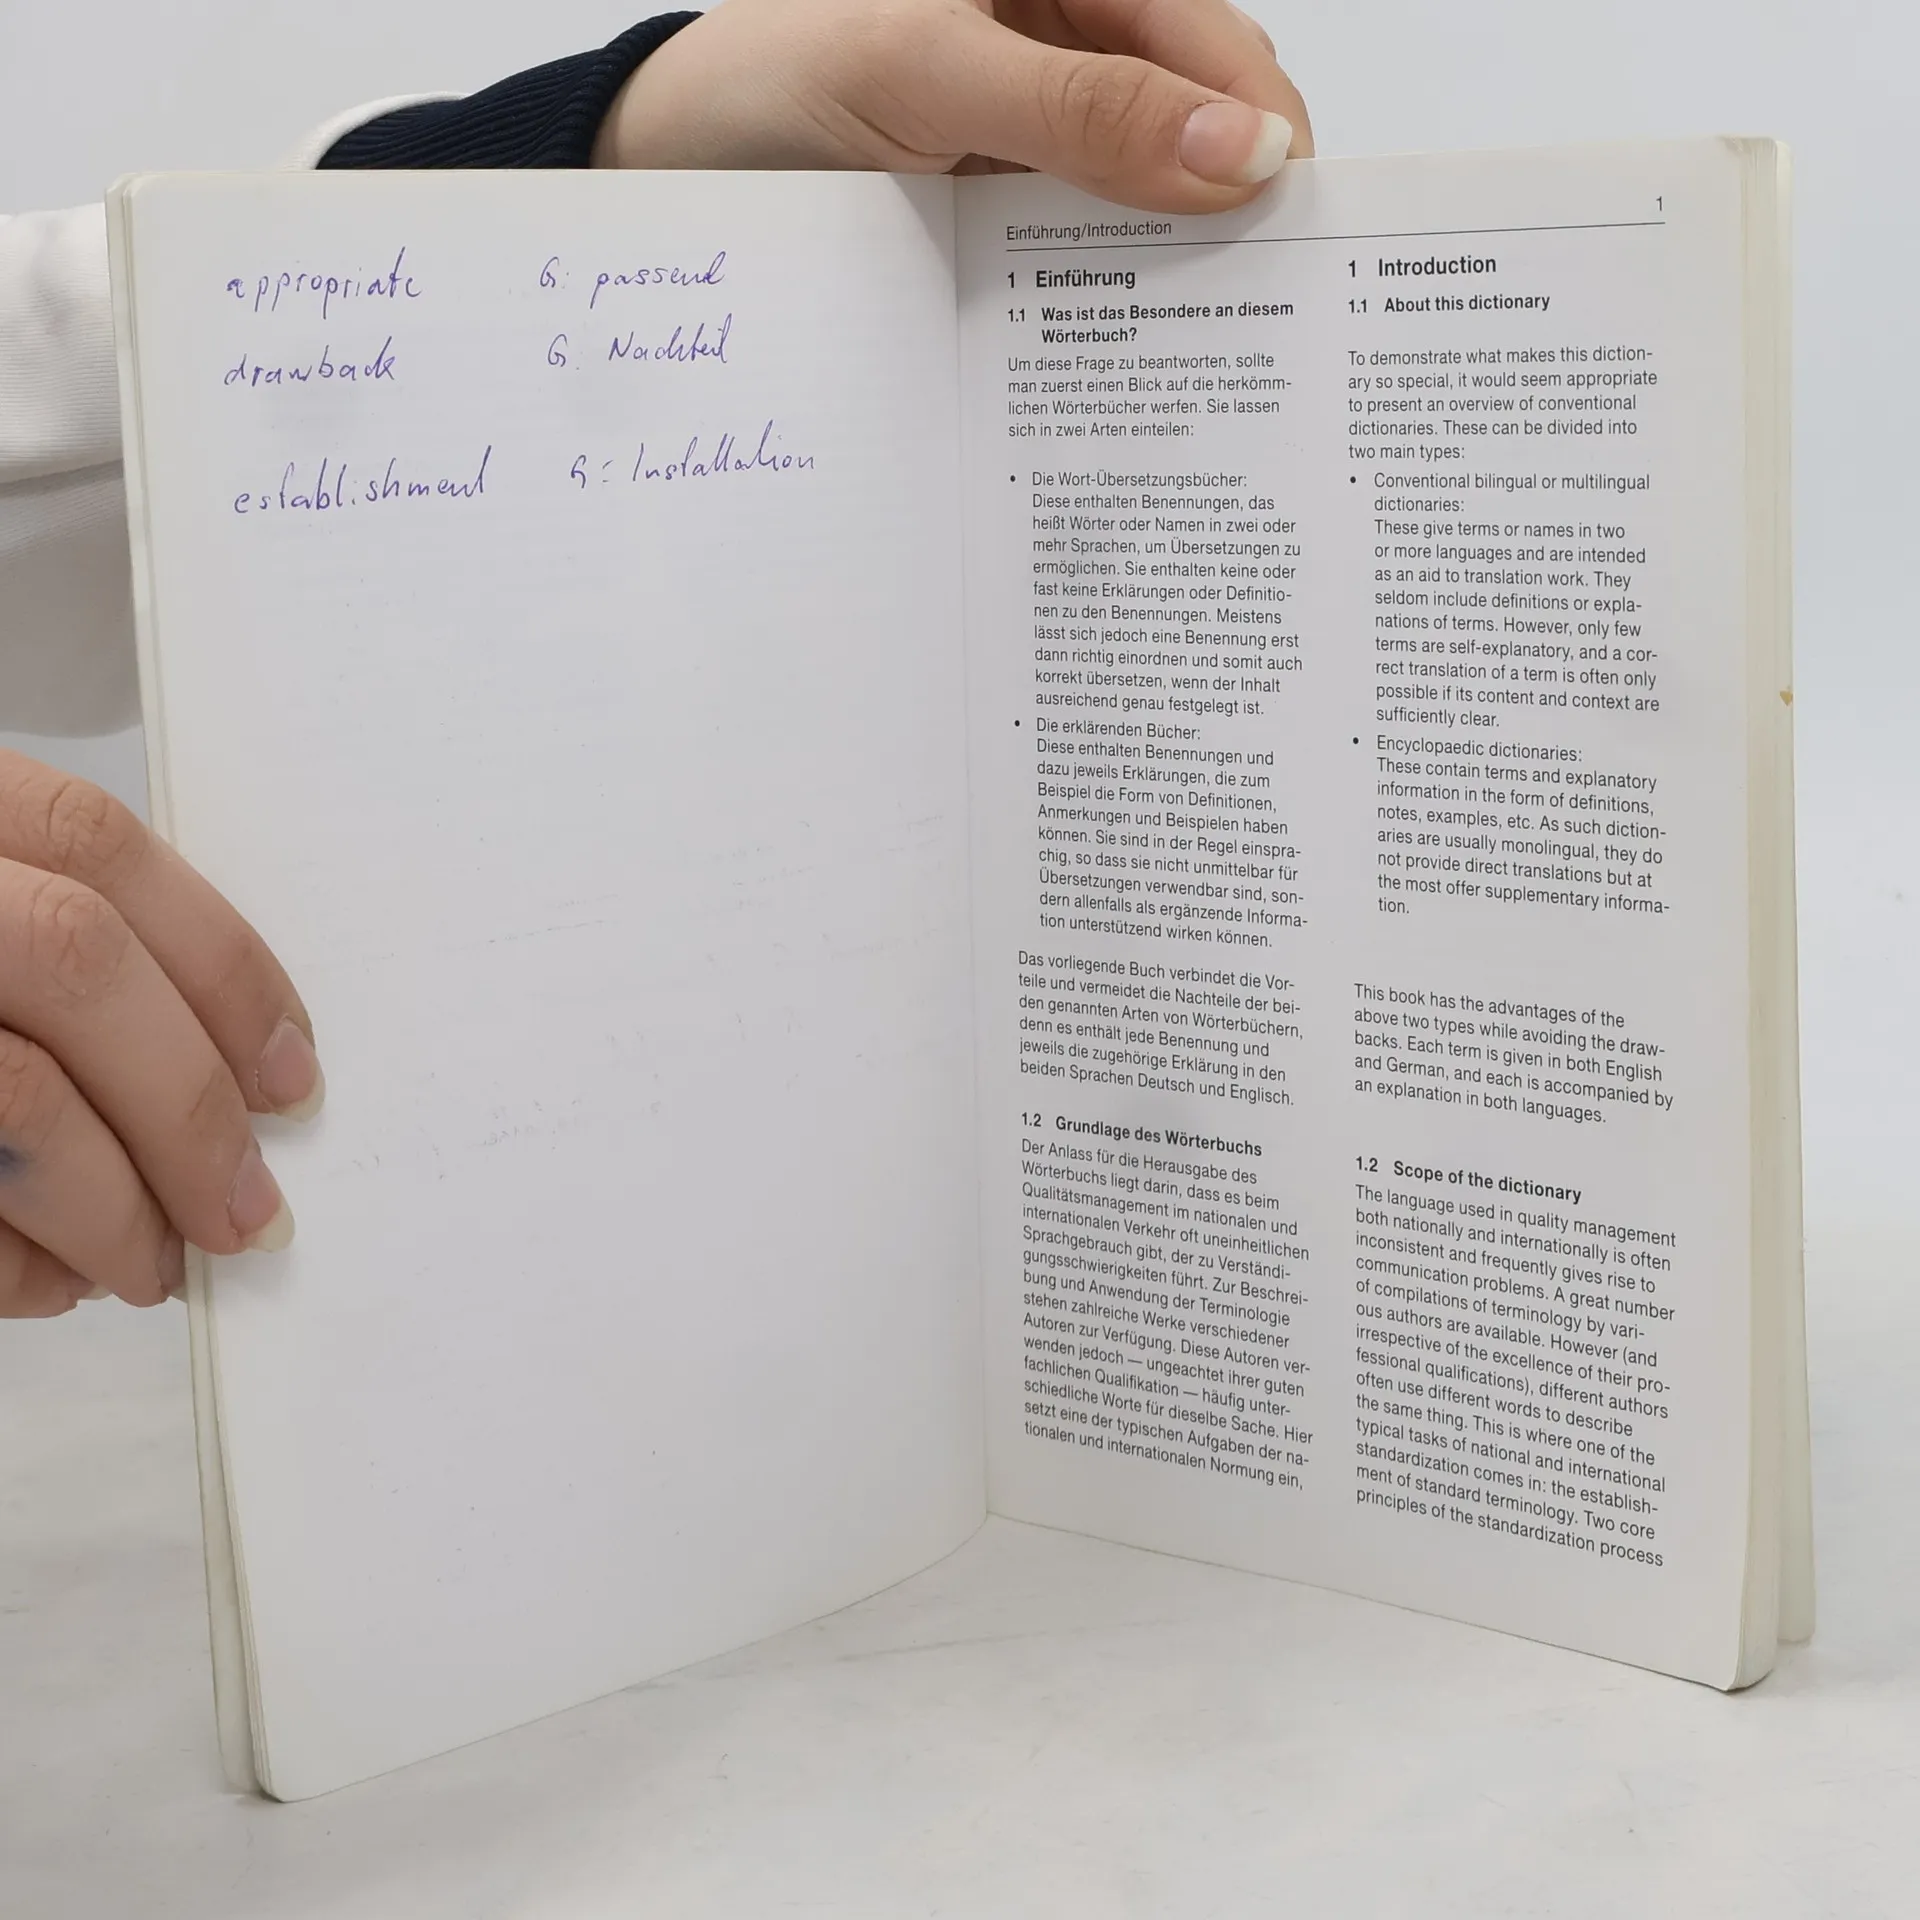 appropriate G: passend
drawback G: Nachteil
establishment G: Installation
Einführung/Introduction 1
1 Einführung
1.1 Was ist das Besondere an diesem
Wörterbuch?
Um diese Frage zu beantworten, sollte
man zuerst einen Blick auf die herkömm-
lichen Wörterbücher werfen. Sie lassen
sich in zwei Arten einteilen:
• Die Wort-Übersetzungsbücher:
Diese enthalten Benennungen, das
heißt Wörter oder Namen in zwei oder
mehr Sprachen, um Übersetzungen zu
ermöglichen. Sie enthalten keine oder
fast keine Erklärungen oder Definitio-
nen zu den Benennungen. Meistens
lässt sich jedoch eine Benennung erst
dann richtig einordnen und somit auch
korrekt übersetzen, wenn der Inhalt
ausreichend genau festgelegt ist.
• Die erklärenden Bücher:
Diese enthalten Benennungen und
dazu jeweils Erklärungen, die zum
Beispiel die Form von Definitionen,
Anmerkungen und Beispielen haben
können. Sie sind in der Regel einspra-
chig, so dass sie nicht unmittelbar für
Übersetzungen verwendbar sind, son-
dern allenfalls als ergänzende Informa-
tion unterstützend wirken können.
Das vorliegende Buch verbindet die Vor-
teile und vermeidet die Nachteile der bei-
den genannten Arten von Wörterbüchern,
denn es enthält jede Benennung und
jeweils die zugehörige Erklärung in den
beiden Sprachen Deutsch und Englisch.
1.2 Grundlage des Wörterbuchs
Der Anlass für die Herausgabe des
Wörterbuchs liegt darin, dass es beim
Qualitätsmanagement im nationalen und
internationalen Verkehr oft uneinheitlichen
Sprachgebrauch gibt, der zu Verständi-
gungsschwierigkeiten führt. Zur Beschrei-
bung und Anwendung der Terminologie
stehen zahlreiche Werke verschiedener
Autoren zur Verfügung. Diese Autoren ver-
wenden jedoch — ungeachtet ihrer guten
fachlichen Qualifikation — häufig unter-
schiedliche Worte für dieselbe Sache. Hier
setzt eine der typischen Aufgaben der na-
tionalen und internationalen Normung ein,
1 Introduction
1.1 About this dictionary
To demonstrate what makes this diction-
ary so special, it would seem appropriate
to present an overview of conventional
dictionaries. These can be divided into
two main types:
• Conventional bilingual or multilingual
dictionaries:
These give terms or names in two
or more languages and are intended
as an aid to translation work. They
seldom include definitions or expla-
nations of terms. However, only few
terms are self-explanatory, and a cor-
rect translation of a term is often only
possible if its content and context are
sufficiently clear.
• Encyclopaedic dictionaries:
These contain terms and explanatory
information in the form of definitions,
notes, examples, etc. As such diction-
aries are usually monolingual, they do
not provide direct translations but at
the most offer supplementary informa-
tion.
This book has the advantages of the
above two types while avoiding the draw-
backs. Each term is given in both English
and German, and each is accompanied by
an explanation in both languages.
1.2 Scope of the dictionary
The language used in quality management
both nationally and internationally is often
inconsistent and frequently gives rise to
communication problems. A great number
of compilations of terminology by vari-
ous authors are available. However (and
irrespective of the excellence of their pro-
fessional qualifications), different authors
often use different words to describe
the same thing. This is where one of the
typical tasks of national and international
standardization comes in: the establish-
ment of standard terminology. Two core
principles of the standardization process